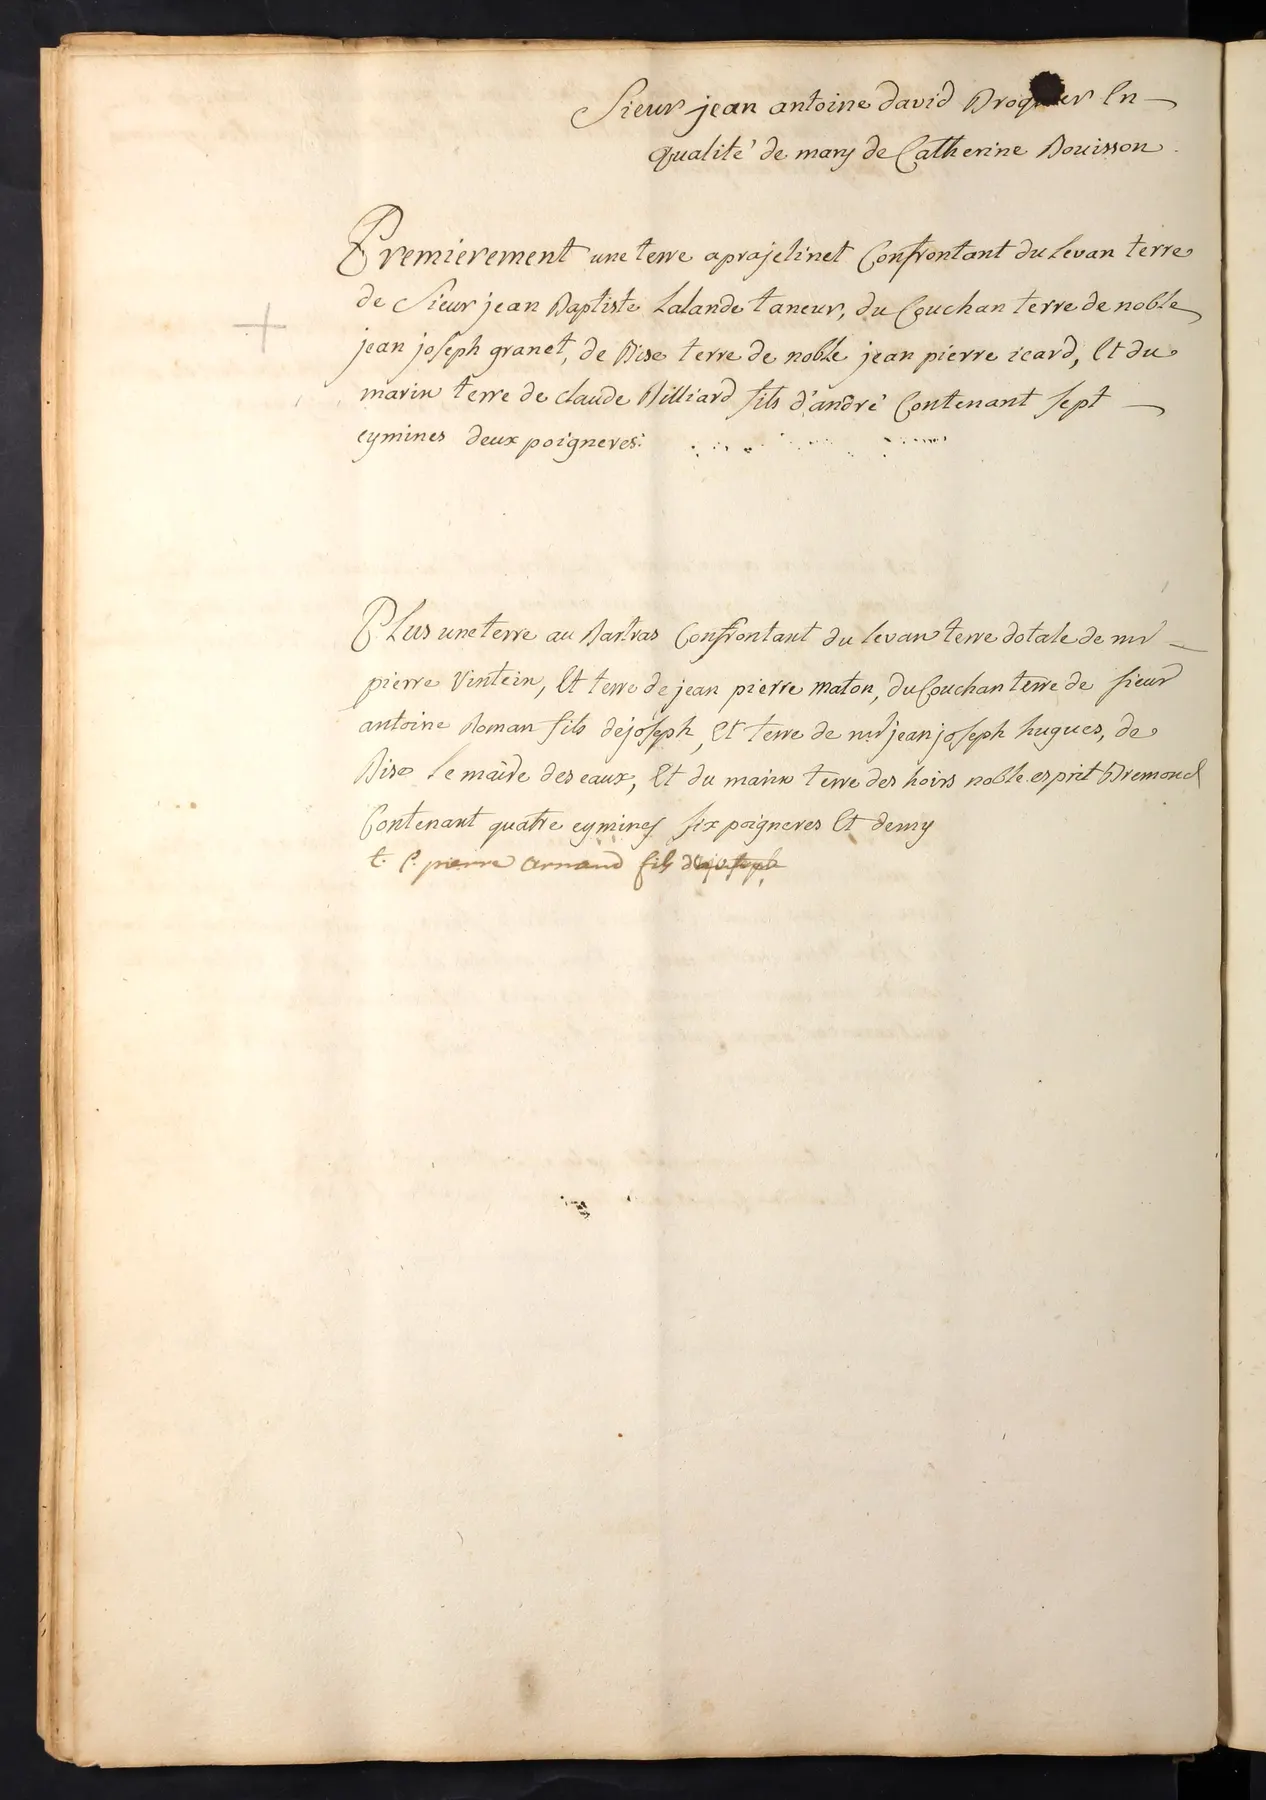 Sieur jean antoine david Droguier En
qualité de mary de Catherine Bouisson
Premierement une terre a prajelinet Confrontant du levan terre
de Sieur jean Baptiste Lalande taneur, du Couchan terre de noble
jean joseph granet, de Bise terre de noble jean pierre icard, Et du
marin terre de claude Billiard fils d'andré Contenant sept
eymines deux poigneres.
Plus une terre au Bartras Confrontant du levan terre dotale de mr
pierre Vintein, Et terre de jean pierre maton, du Couchan terre de sieur
antoine Roman fils de joseph, Et terre de mr jean joseph hugues, de
Bise le maire des eaux, Et du marin terre des hoirs noble esprit Bremond
Contenant quatre eymines six poigneres Et demy
t. s. pierre arnaud fils de joseph